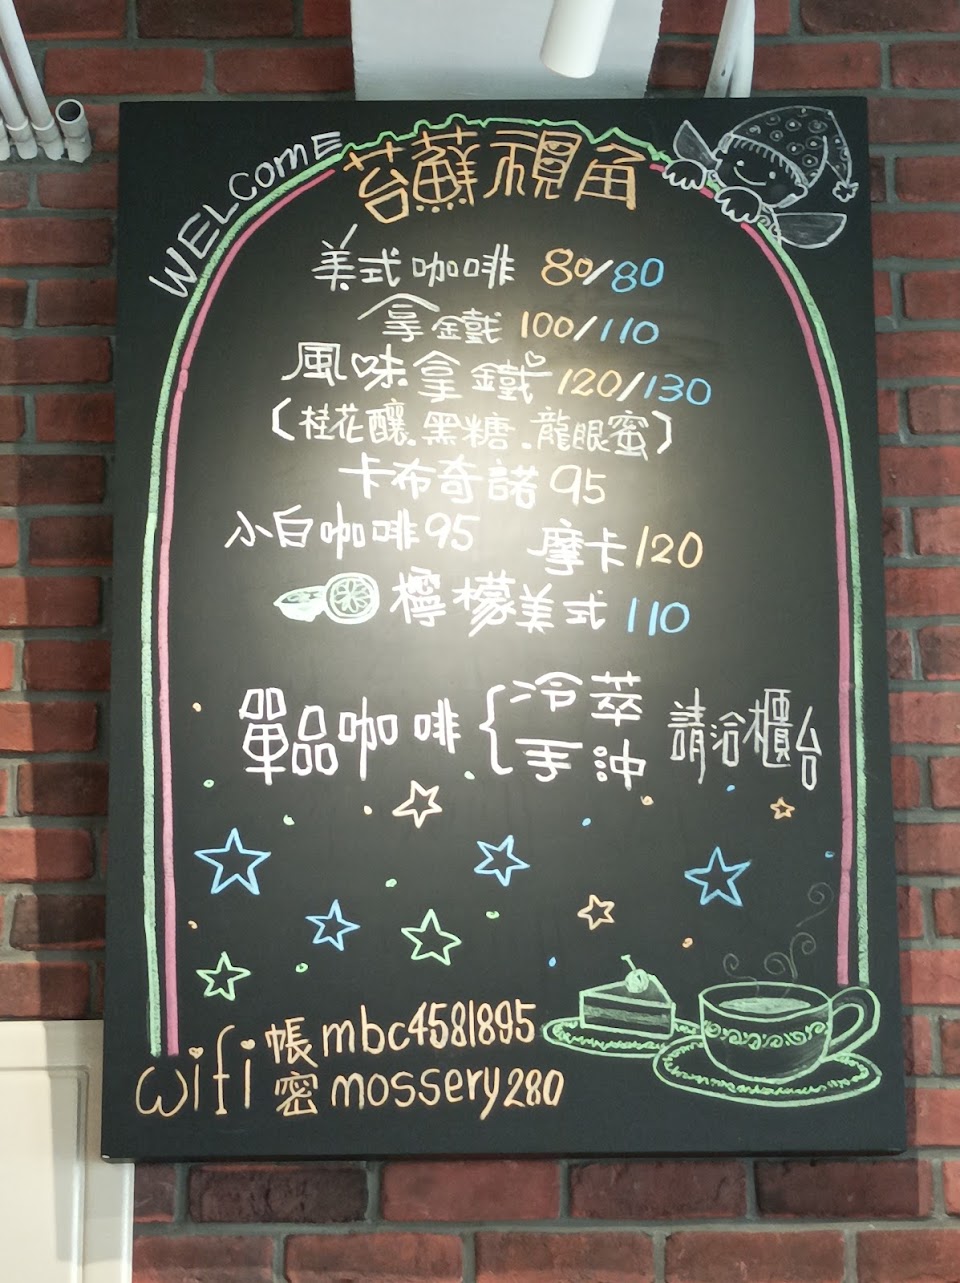 WELCOME
苔蘚視角
美式咖啡 80/80
拿鐵 100/110
風味拿鐵 120/130
(桂花釀.黑糖.龍眼蜜)
卡布奇諾 95
小白咖啡 95 摩卡 120
檸檬美式 110
單品咖啡 { 冷萃 手沖 請洽櫃台
wifi 帳 mbc4581895
密 mossery280